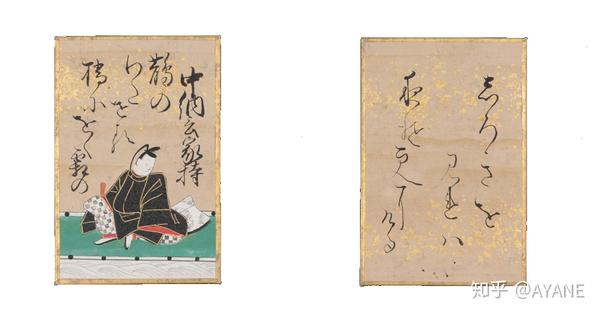 中納言家持
鵲の
わたせる
橋にをく霜の
しろきを
見れハ
夜そ更にける
知乎 @AYANE